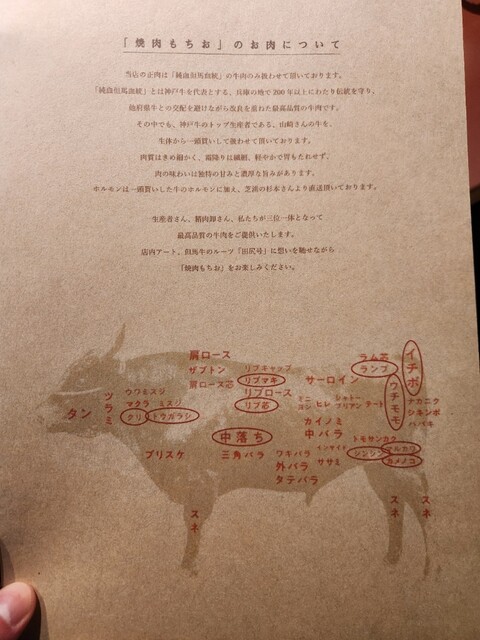 「焼肉もちお」のお肉について
当店の正肉は「純血但馬血統」の牛肉のみ扱わせて頂いております。
「純血但馬血統」とは神戸牛を代表とする、兵庫の地で200年以上にわたり伝統を守り、
他府県牛との交配を避けながら改良を重ねた最高品質の牛肉です。
その中でも、神戸牛のトップ生産者である、山崎さんの牛を、
生体から一頭買いして扱わせて頂いております。
肉質はきめ細かく、霜降りは繊細、軽やかで胃もたれせず、
肉の味わいに独特の甘みと濃厚な旨みがあります。
ホルモンは一頭買いした牛のホルモンに加え、芝浦の杉本さんより直送頂いております。
生産者さん、精肉卸さん、私たちが三位一体となって
最高品質の牛肉をご提供いたします。
店内アート、但馬牛のルーツ「田尻号」に想いを馳せながら
「焼肉もちお」をお楽しみください。
肩ロース
ザブトン
肩ロース芯
リブキャップ
リブマキ
リブロース
リブ芯
サーロイン
ラム芯
ランプ
イチボ
ウチモモ
ナカニク
シキンボ
ハバキ
タン
ツラミ
ウワミスジ
マクラ ミスジ
クリ トウガラシ
ヒレ
シャトーブリアン
テート
カイノミ
中バラ
中落ち
トモサンカク
ブリスケ
三角バラ
ウチバラ
外バラ
タテバラ
インサイド
ササミ
シンシン
マルカワ
カメノコ
スネ
スネ
スネ